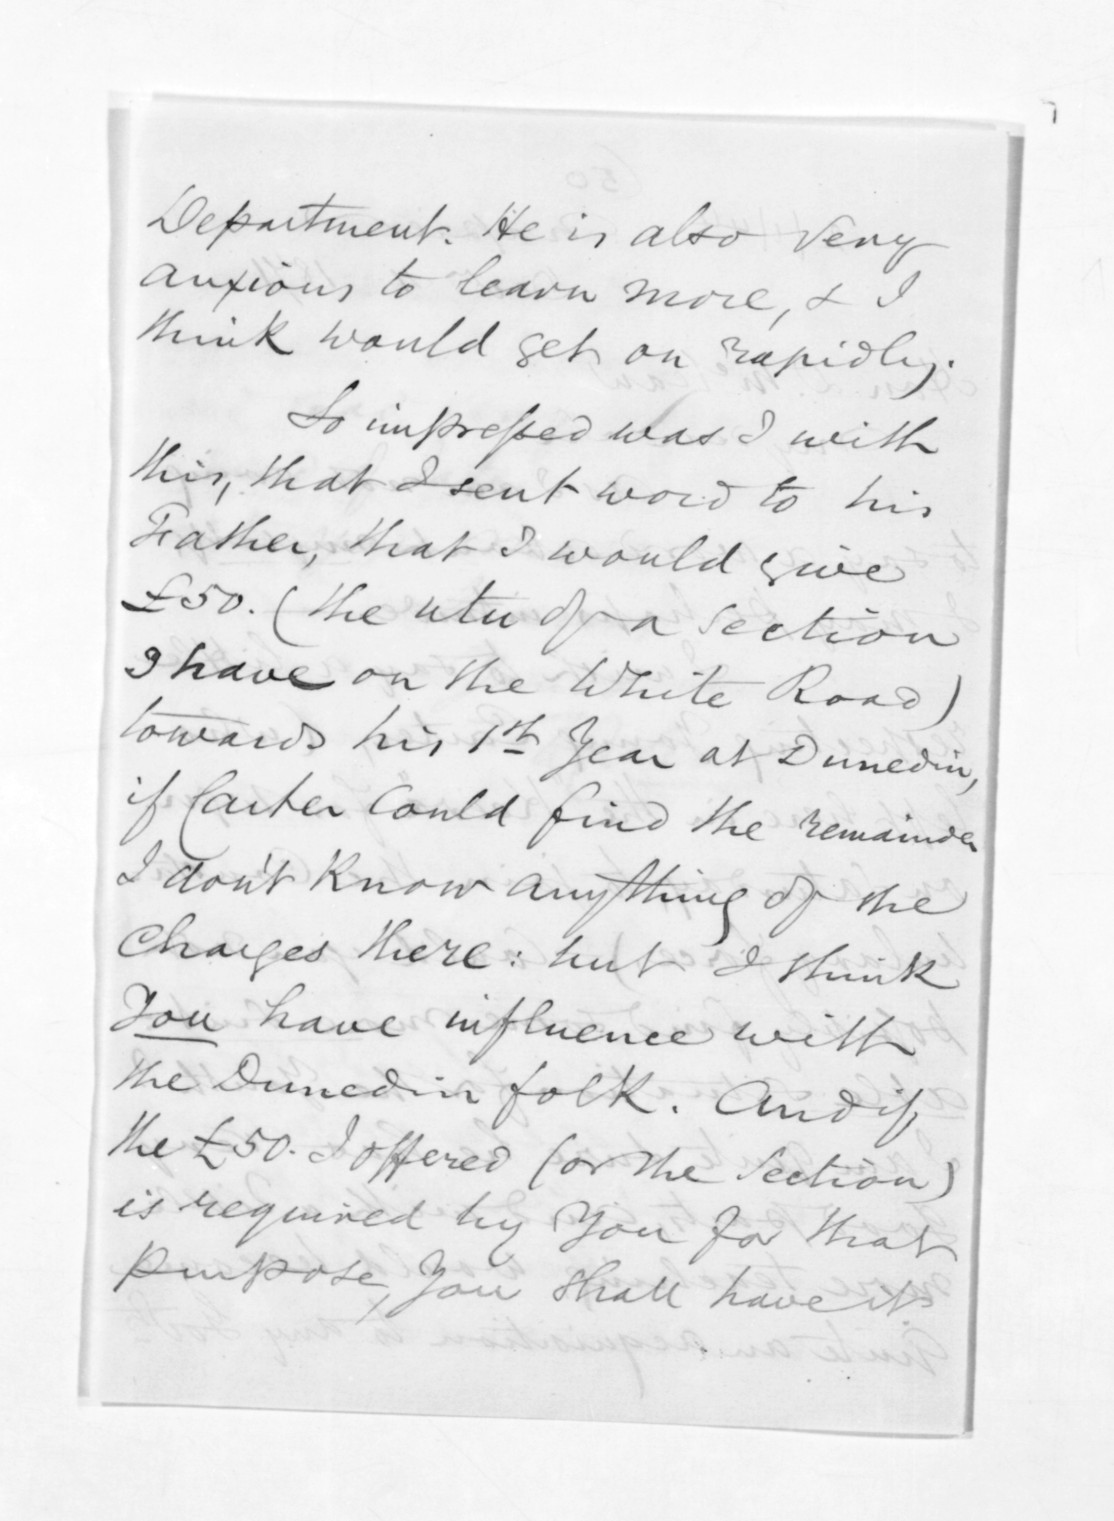 Department. He is also very
anxious to learn more, & I
think would get on rapidly.
So impressed was I with
this, that I sent word to his
Father, that I would give
£50. (the utu of a Section
I have on the White Road)
towards his 1st Year at Dunedin,
if Carter could find the remainder
I don't Know anything of the
Charges there: but I think
You have influence with
the Dunedin folk. And if
the £50. I offered (or the Section)
is required by You for that
purpose, You shall have it